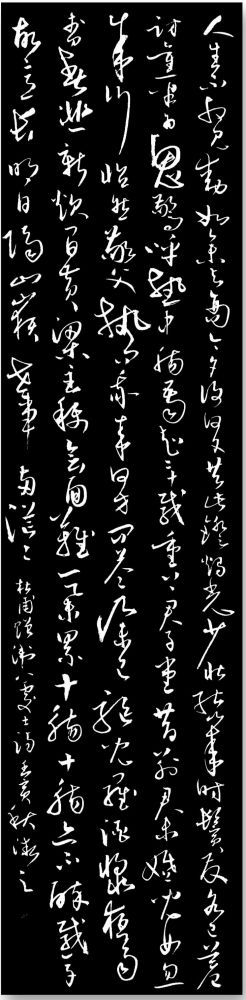 人生不相見動如參與商今夕復何夕共此燈燭光少壯能幾時鬢髮各已蒼
訪舊半為鬼驚呼熱中腸焉知二十載重上君子堂昔別君未婚兒女忽
成行怡然敬父執問我來何方問答乃未已驅兒羅酒漿夜雨
剪春韭新炊間黃粱主稱會面難一舉累十觴十觴亦不醉感子
故意長明日隔山嶽世事兩茫茫
杜甫贈衛八處士詩 秋 之